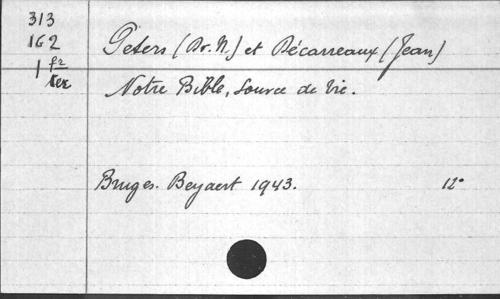 313
1G2
1 f2
Peters (Dr. N.) et Décarreaux (Jean)
Notre Bible, Source de Vie.
Bruges. Beyaert 1943. 12°